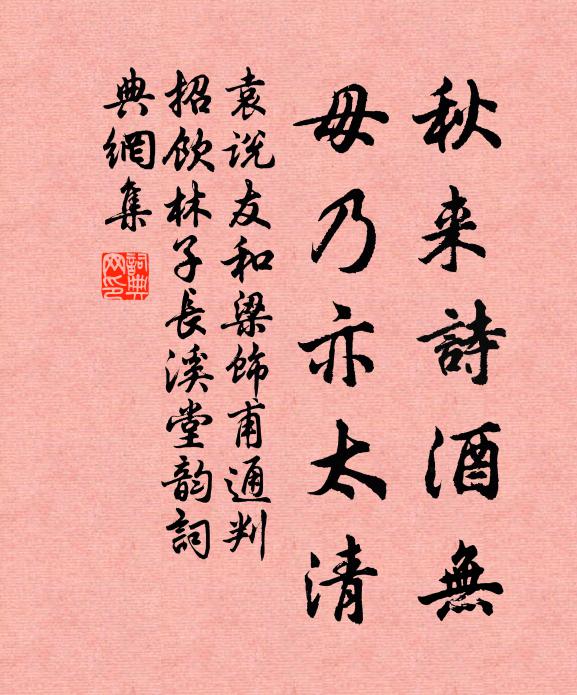 秋来詩酒無
毋乃亦太清
袁说友和梁飾甫通判
招飲林子長溪堂韵詞
典網集
詞典网印